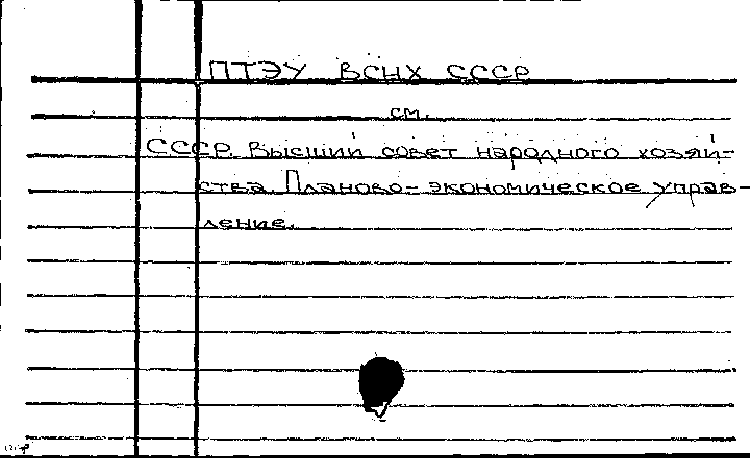 ПТЭУ ВСНХ СССР
см.
СССР. Высший совет народного хозяй-
ства. Планово-экономическое управ-
ление.